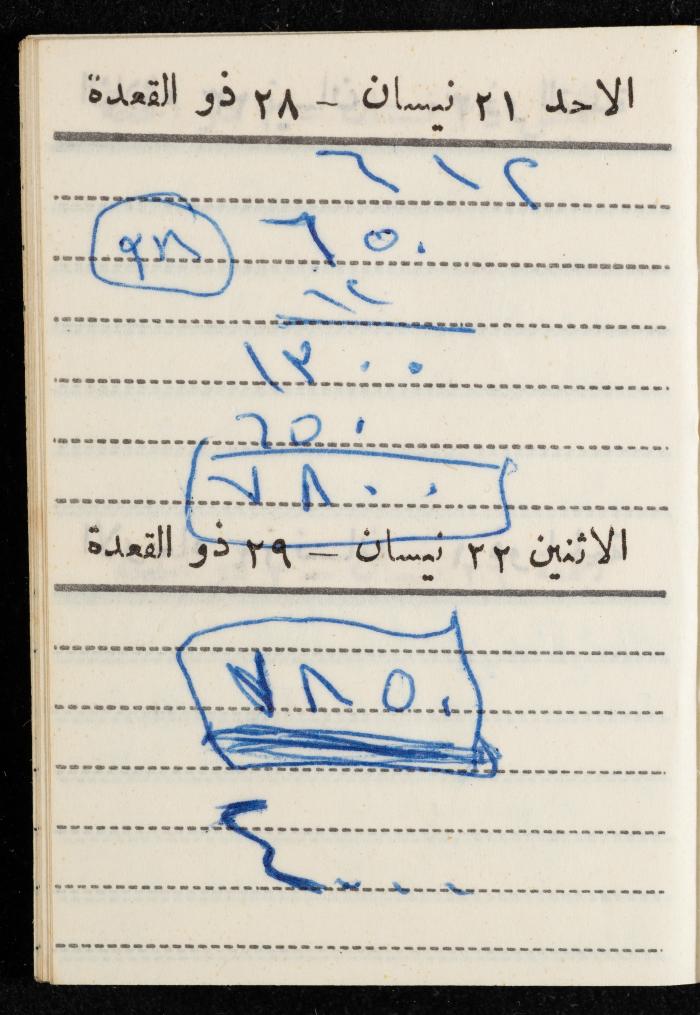 الاحد ٢١ نيسان – ٢٨ ذو القعدة
٦١٢
٦٥٠
٩٨
١٢
١٣٠٠
٦٥٠
٧٨٠٠
الاثنين ٢٢ نيسان – ٢٩ ذو القعدة
٧٨٥٠
٤٠٠٠